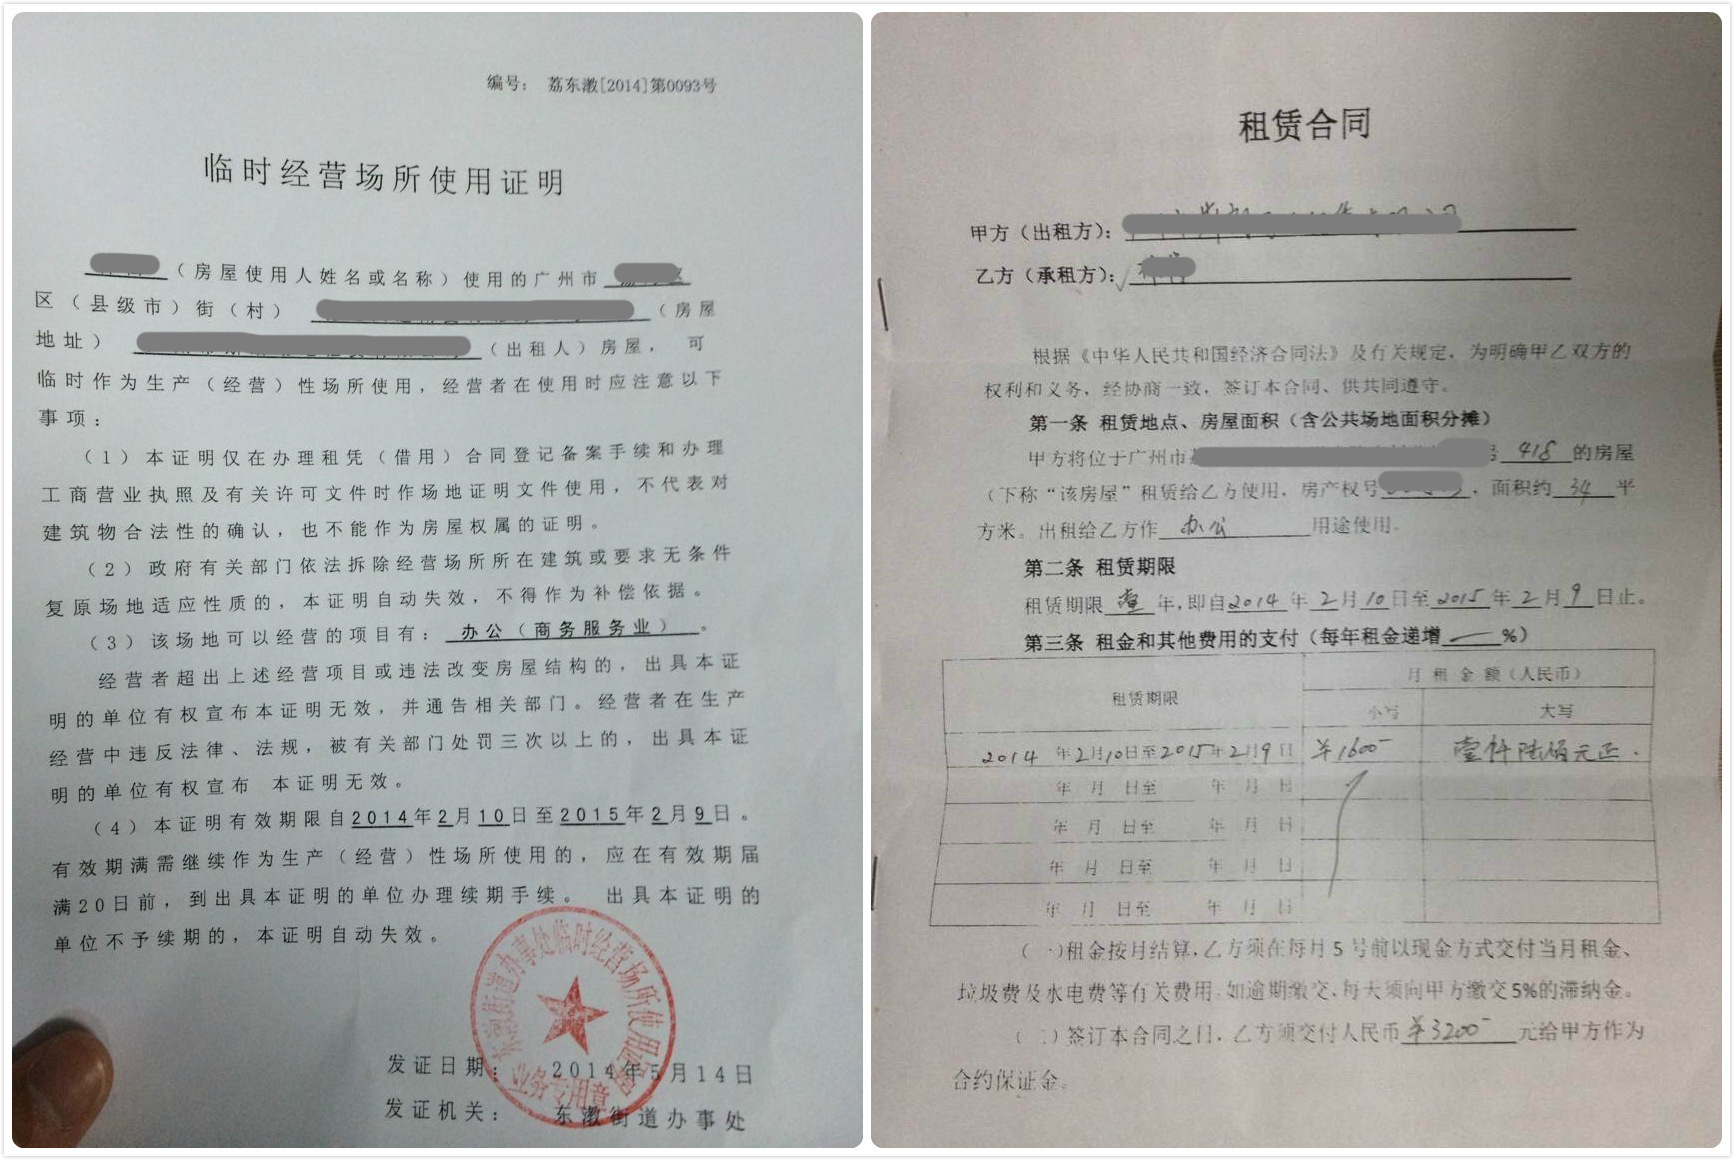 编号： 荔东漖[2014]第0093号
临时经营场所使用证明
（房屋使用人姓名或名称）使用的广州市
区（县级市）街（村） （房屋
地址） （出租人）房屋， 可
临时作为生产（经营）性场所使用，经营者在使用时应注意以下
事项：
（1）本证明仅在办理租凭（借用）合同登记备案手续和办理
工商营业执照及有关许可文件时作场地证明文件使用，不代表对
建筑物合法性的确认，也不能作为房屋权属的证明。
（2）政府有关部门依法拆除经营场所所在建筑或要求无条件
复原场地适应性质的，本证明自动失效，不得作为补偿依据。
（3）该场地可以经营的项目有： 办公（商务服务业） 。
经营者超出上述经营项目或违法改变房屋结构的，出具本证
明的单位有权宣布本证明无效，并通告相关部门。经营者在生产
经营中违反法律、法规，被有关部门处罚三次以上的，出具本证
明的单位有权宣布 本证明无效。
（4）本证明有效期限自2014年2月10日至2015年2月9日。
有效期满需继续作为生产（经营）性场所使用的，应在有效期届
满20日前，到出具本证明的单位办理续期手续。 出具本证明的
单位不予续期的，本证明自动失效。
东漖街道办事处临时经营场所使用证明
业务专用章
发证日期： 2014年5月14日
发证机关： 东漖街道办事处
租赁合同
甲方（出租方）：
乙方（承租方）：
根据《中华人民共和国经济合同法》及有关规定，为明确甲乙双方的
权利和义务，经协商一致，签订本合同、供共同遵守。
第一条 租赁地点、房屋面积（含公共场地面积分摊）
甲方将位于广州市 号 418 的房屋
（下称“该房屋”租赁给乙方使用，房产权号 ，面积约 34 平
方米。出租给乙方作 办公 用途使用。
第二条 租赁期限
租赁期限 壹 年，即自2014年2月10日至2015年2月9日止。
第三条 租金和其他费用的支付（每年租金递增 — %）
租赁期限 月 租 金 额（人民币）
小写 大写
2014 年2月10日至2015年2月9日 ￥1600- 壹仟陆佰元正.
年 月 日至 年 月 日
年 月 日至 年 月 日
年 月 日至 年 月 日
年 月 日至 年 月 日
（一）租金按月结算，乙方须在每月5号前以现金方式交付当月租金、
垃圾费及水电费等有关费用，如逾期缴交，每天须向甲方缴交5%的滞纳金。
（二）签订本合同之日，乙方须交付人民币 ￥3200- 元给甲方作为
合约保证金。